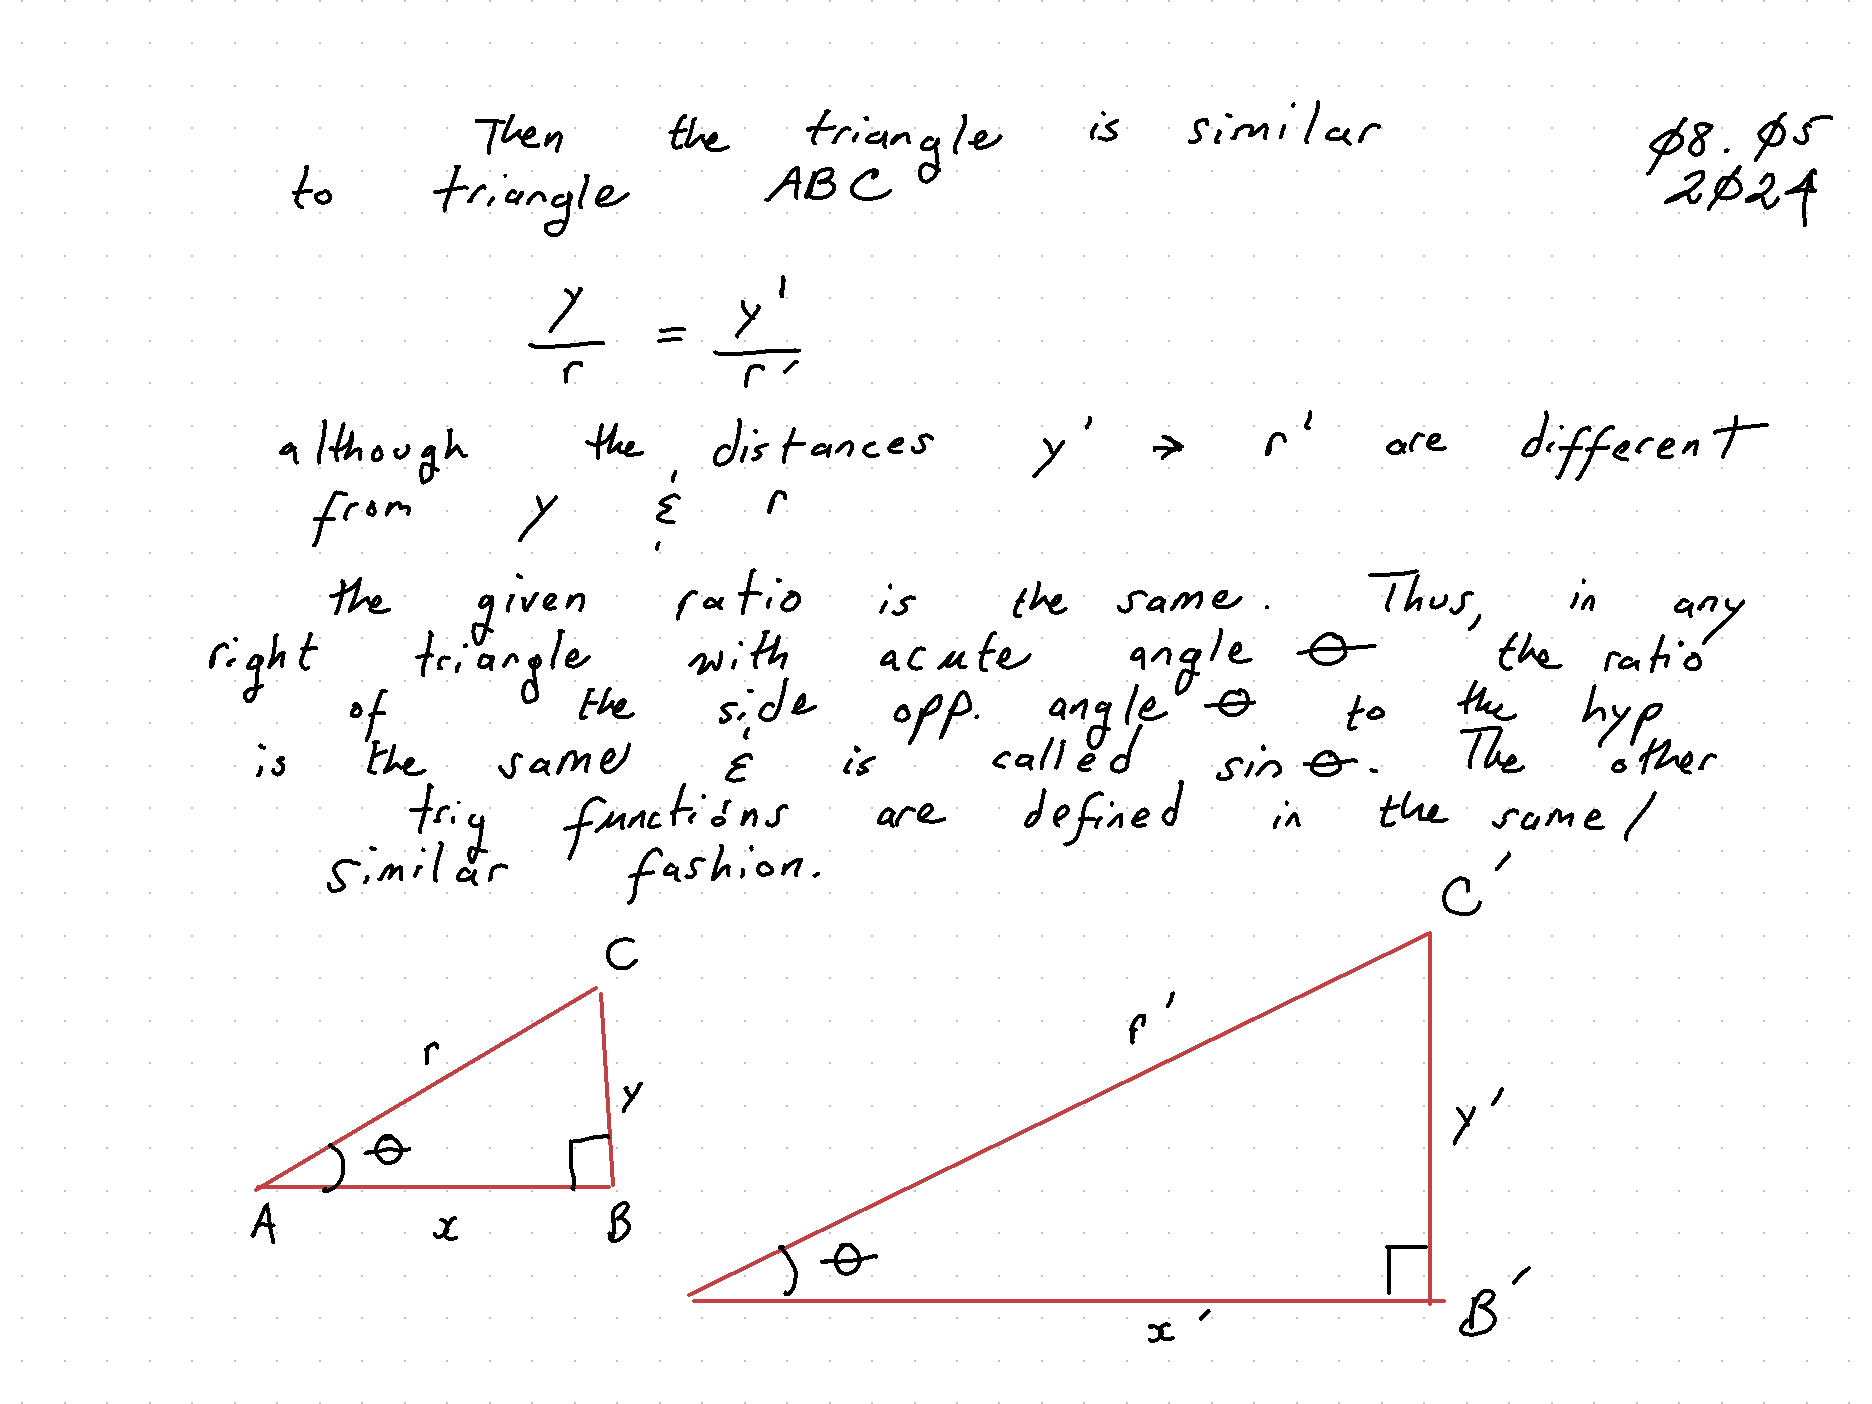 Then the triangle is similar
to triangle ABC
ø8. ø5
2ø24
y/r = y'/r'
although the distances y' → r' are different
from y & r
the given ratio is the same. Thus, in any
right triangle with acute angle θ the ratio
of the side opp. angle θ to the hyp
is the same & is called sin θ. The other
trig functions are defined in the same/
similar fashion.
C'
C
r'
r
y
y'
θ
A x B
θ
x' B'